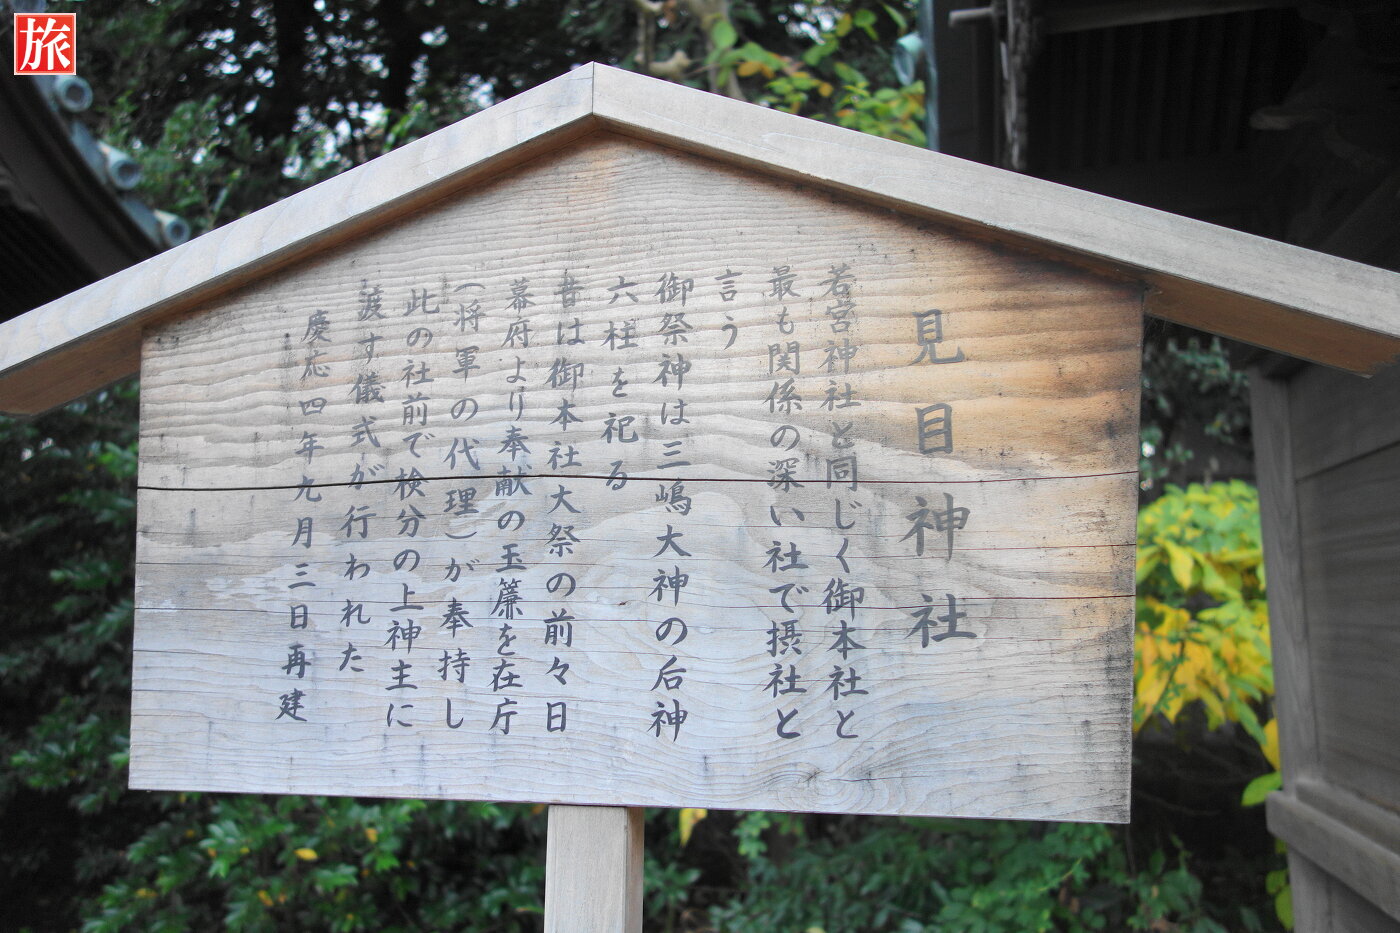 旅
見目神社
若宮神社と同じく御本社と
最も関係の深い社で摂社と
言う
御祭神は三嶋大神の后神
六柱を祀る
昔は御本社大祭の前々日
幕府より奉献の玉簾を在庁
(将軍の代理)が奉持し
此の社前で検分の上神主に
渡す儀式が行われた
慶応四年九月三日再建